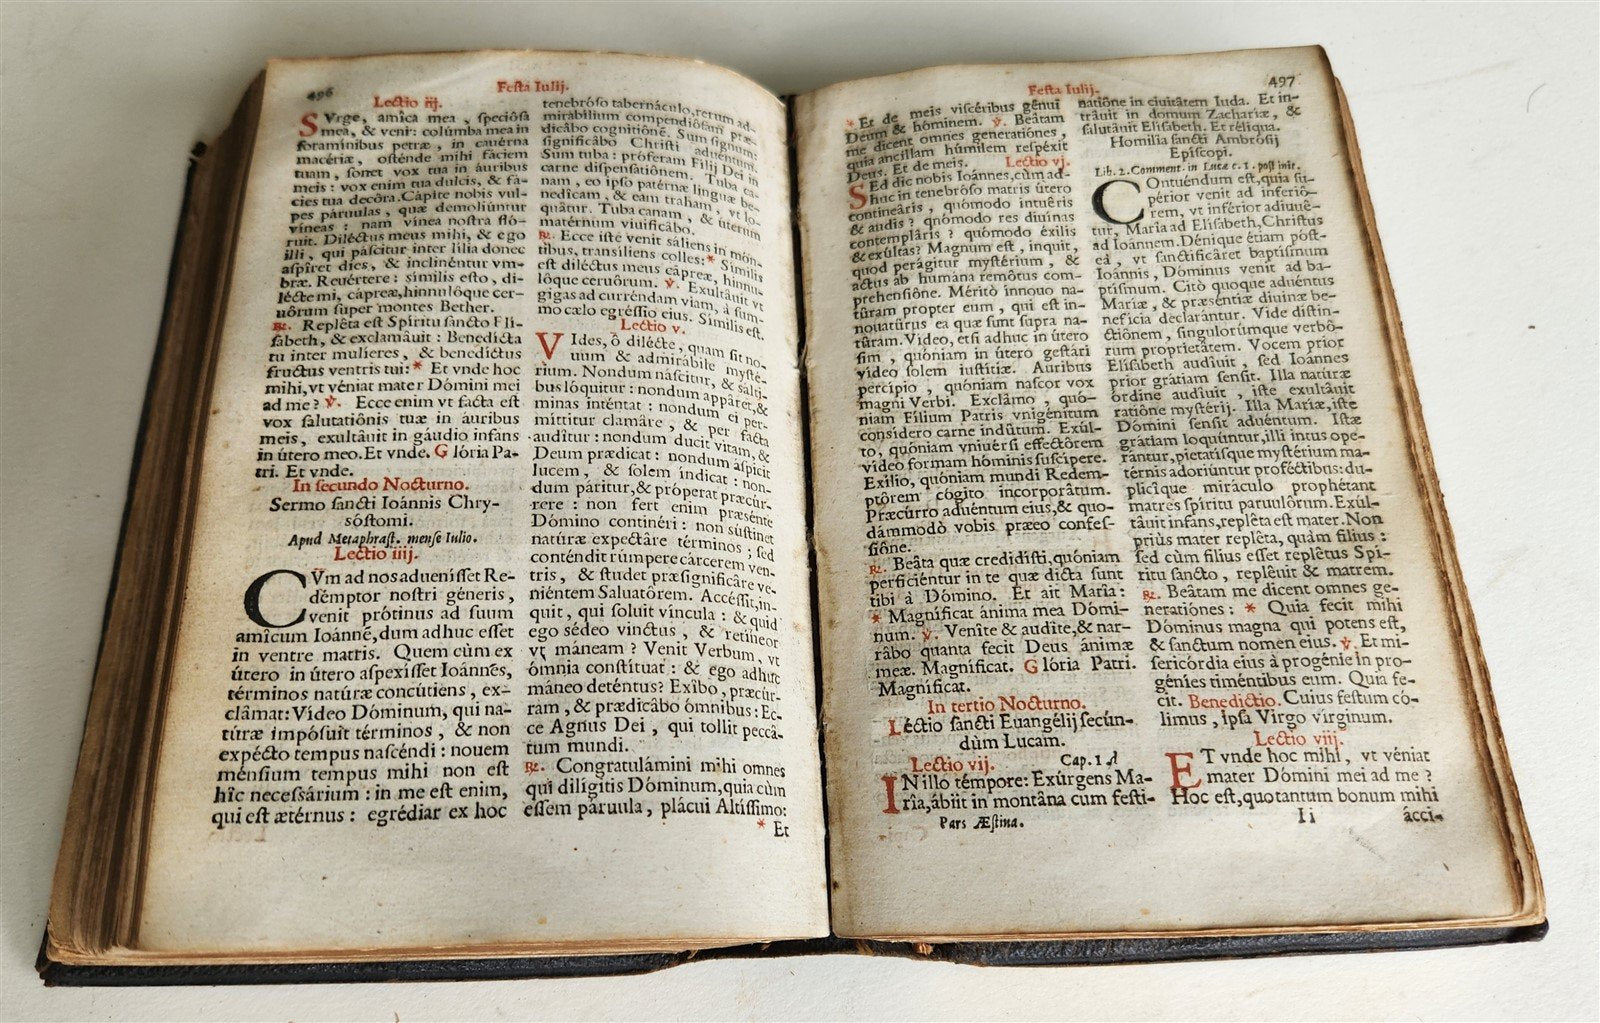 496
Festa Iulij.
Lectio iij.
SVrge, amíca mea, speciósa
mea, & veni: colúmba mea in
foramínibus petræ, in cauérna
macériæ, osténde mihi fáciem
tuam, sonet vox tua in áuribus
meis: vox enim tua dulcis, & fá-
cies tua decôra. Cápite nobis vul-
pes páruulas, quæ demoliúntur
víneas: nam vínea nostra fló-
ruit. Diléctus meus mihi, & ego
illi, qui páscitur inter lília donec
aspîret dies, & inclinéntur vm-
bræ. Reuértere: símilis esto, di-
lécte mi, cápreæ, hinnulôque cer-
uôrum super montes Bether.
℟. Replêta est Spíritu sancto Eli-
sabeth, & exclamâuit: Benedícta
tu inter mulíeres, & benedíctus
fructus ventris tui: * Et vnde hoc
mihi, vt véniat mater Dómini mei
ad me? ℣. Ecce enim vt facta est
vox salutatiônis tuæ in áuribus
meis, exultâuit in gáudio infans
in útero meo. Et vnde. Glória Pa-
tri. Et vnde.
In secundo Nocturno.
Sermo sancti Ioánnis Chry-
sóstomi.
Apud Metaphrast. mense Iulio.
Lectio iiij.
CVm ad nos aduenísset Re-
démptor nostri géneris,
venit prótinus ad suum
amîcum Ioánnē, dum adhuc esset
in ventre matris. Quem cùm ex
útero in útero aspexísset Ioánnes,
términos natúræ concútiens, ex-
clâmat: Vídeo Dóminum, qui na-
túræ impósuit términos, & non
expécto tempus nascéndi: nouem
ménsium tempus mihi non est
hîc necessárium: in me est enim,
qui est ætérnus: egrédiar ex hoc
tenebróso tabernáculo, rerum ad-
mirabílium compendiósam præ-
dicábo cognitiônē. Sum signum:
significábo Christi aduéntum.
Sum tuba: próferam Filij Dei in
carne dispensatiônem. Tuba ca-
nam, eo ipso patérnæ linguæ be-
nedîcam, & eam traham, vt lo-
quâtur. Tuba canam, & úterum
matérnum viuificábo.
℟. Ecce iste venit sáliens in món-
tibus, transíliens colles: * Símilis
est diléctus meus cápreæ, hinnu-
lôque ceruôrum. ℣. Exultâuit vt
gigas ad curréndam viam, à sum-
mo cælo egréssio eius. Símilis est.
Lectio v.
VIdes, ô dilécte, quam sit no-
uum & admirábile mysté-
rium. Nondum náscitur, & sálti-
bus lóquitur: nondum appáret, &
minas inténtat: nondum ei per-
míttitur clamáre, & per facta
audîtur: nondum ducit vitam, &
Deum prædicat: nondum áspicit
lucem, & solem índicat: non-
dum páritur, & próperat præcúr-
rere: non fert enim præsénte
Dómino continéri: non sústinet
natúræ expectâre términos; sed
conténdit rúmpere cárcerem ven-
tris, & studet præsignificâre ve-
niéntem Saluatôrem. Accéssit, in-
quit, qui soluit víncula: & quid
ego sédeo vinctus, & retíneor
vt máneam? Venit Verbum, vt
ómnia constítuat: & ego adhuc
máneo deténtus? Exîbo, præcúr-
ram, & prædicábo ómnibus: Ec-
ce Agnus Dei, qui tollit peccâ-
tum mundi.
℟. Congratulámini mihi omnes
qui dilígitis Dóminum, quia cùm
essem páruula, plácui Altíssimo:
* Et
Festa Iulij.
497
* Et de meis viscéribus génui
Deum & hóminem. ℣. Beâtam
me dicent omnes generatiónes,
quia ancíllam húmilem respéxit
Deus. Et de meis. Lectio vj.
SEd dic nobis Ioánnes, cùm ad-
huc in tenebróso matris útero
contineáris, quómodo intuêris
& audis? quómodo res diuínas
contemplâris? quómodo éxilis
& exúltas? Magnum est, inquit,
quod perágitur mystérium, &
actus ab humána remôtus com-
prehensiône. Méritò innouo na-
tûram propter eum, qui est in-
nouatûrus ea quæ sunt supra na-
tûram. Video, etsi adhuc in útero
sim, quóniam in útero gestári
vídeo solem iustítiæ. Auribus
percípio, quóniam nascor vox
magni Verbi. Exclâmo, quó-
niam Fílium Patris vnigénitum
consídero carne indûtum. Exúl-
to, quóniam vniuérsi effectôrem
vídeo formam hóminis suscípere.
Exílio, quóniam mundi Redem-
ptôrem cógito incorporátum.
Præcúrro aduéntum eius, & quo-
dámmodò vobis præeo confes-
siône.
℟. Beâta quæ credidísti, quóniam
perficiéntur in te quæ dicta sunt
tibi à Dómino. Et ait María:
* Magníficat ánima mea Dómi-
num. ℣. Venîte & audîte, & nar-
râbo quanta fecit Deus ánimæ
meæ. Magníficat. Glória Patri.
Magníficat.
In tertio Nocturno.
Léctio sancti Euangélij secún-
dùm Lucam.
Lectio vij. Cap. 1. d
IN illo témpore: Exúrgens Ma-
rîa, ábijt in montâna cum festi-
Pars Æstiua.
natiône in ciuitâtem Iuda. Et in-
tráuit in domum Zachariæ, &
salutâuit Elísabeth. Et réliqua.
Homilia sancti Ambrósij
Epíscopi.
Lib. 2. Comment. in Lucæ c. 1. post init.
COntuéndum est, quia su-
périor venit ad inferió-
rem, vt inférior adiuuê-
tur, María ad Elísabeth, Christus
ad Ioánnem. Dénique étiam póst-
eà, vt sanctificâret baptísmum
Ioánnis, Dóminus venit ad ba-
ptísmum. Citò quoque aduéntus
Maríæ, & præséntiæ diuínæ be-
neficia declarántur. Vide distin-
ctiônem, singulorúmque verbô-
rum proprietâtem. Vocem prior
Elísabeth audîuit, sed Ioánnes
prior grátiam sensit. Illa natúræ
órdine audîuit, iste exultâuit
ratiône mystérij. Illa Maríæ, iste
Dómini sensit aduéntum. Istæ
grátiam loquúntur, illi intus ope-
rántur, pietatísque mystérium ma-
térnis adoriúntur proféctibus: du-
plicîque miráculo prophétant
matres spíritu paruulôrum. Exúl-
tâuit infans, replêta est mater. Non
priùs mater replêta, quàm filius:
sed cùm filius esset replêtus Spí-
ritu sancto, replêuit & matrem.
℟. Beâtam me dicent omnes ge-
neratiónes: * Quia fecit mihi
Dóminus magna qui potens est,
& sanctum nomen eius. ℣. Et mi-
sericórdia eius à progénie in pro-
génies timéntibus eum. Quia fe-
cit. Benedictio. Cuius festum có-
limus, ipsa Virgo vírginum.
Lectio viij.
ET vnde hoc mihi, vt véniat
mater Dómini mei ad me?
Hoc est, quo tantum bonum mihi
Ii
acci-